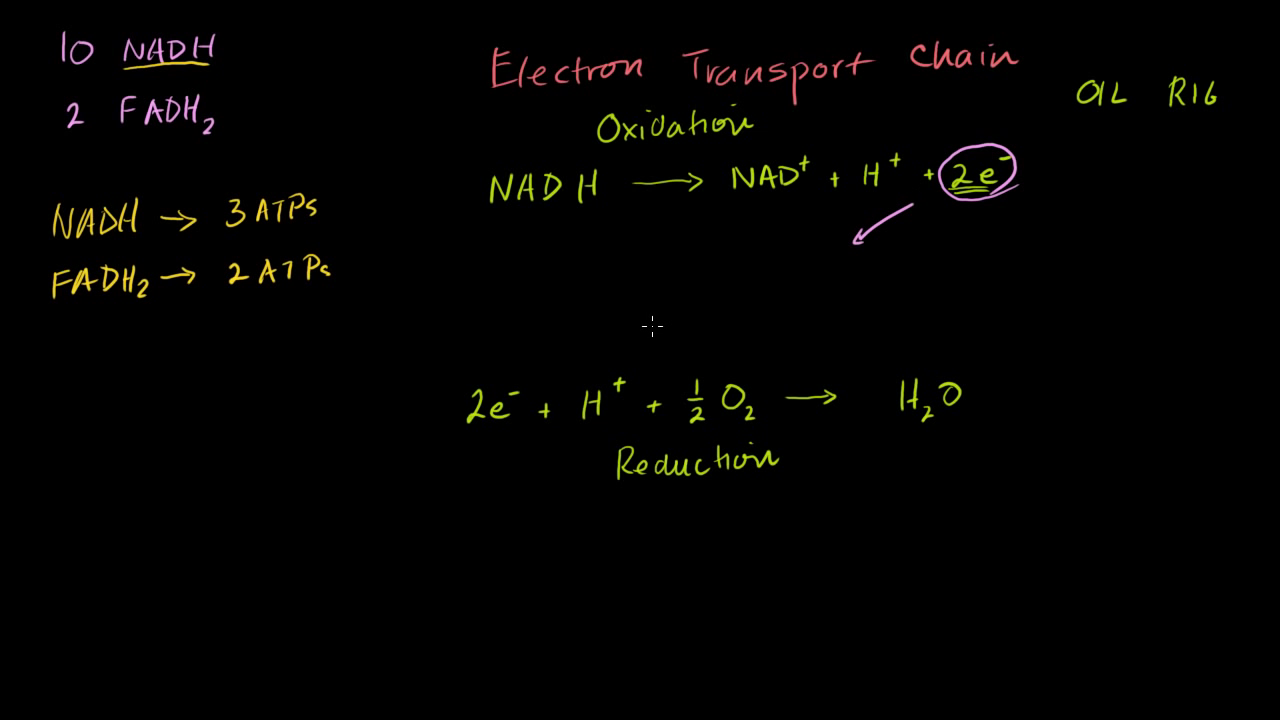 10 NADH
2 FADH₂
NADH → 3 ATPs
FADH₂ → 2 ATPs
Electron Transport Chain
OIL RIG
Oxidation
NADH → NAD⁺ + H⁺ + 2e⁻
2e⁻ + H⁺ + ½ O₂ → H₂O
Reduction